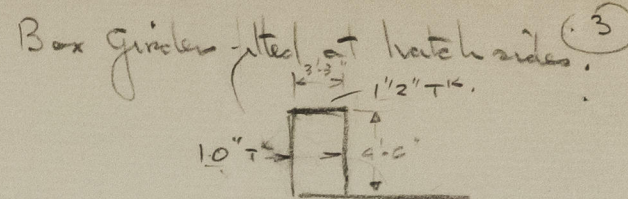 Box Girder fitted at hatch sides. 3
3'-3"
1"2" TK.
1.0" TK